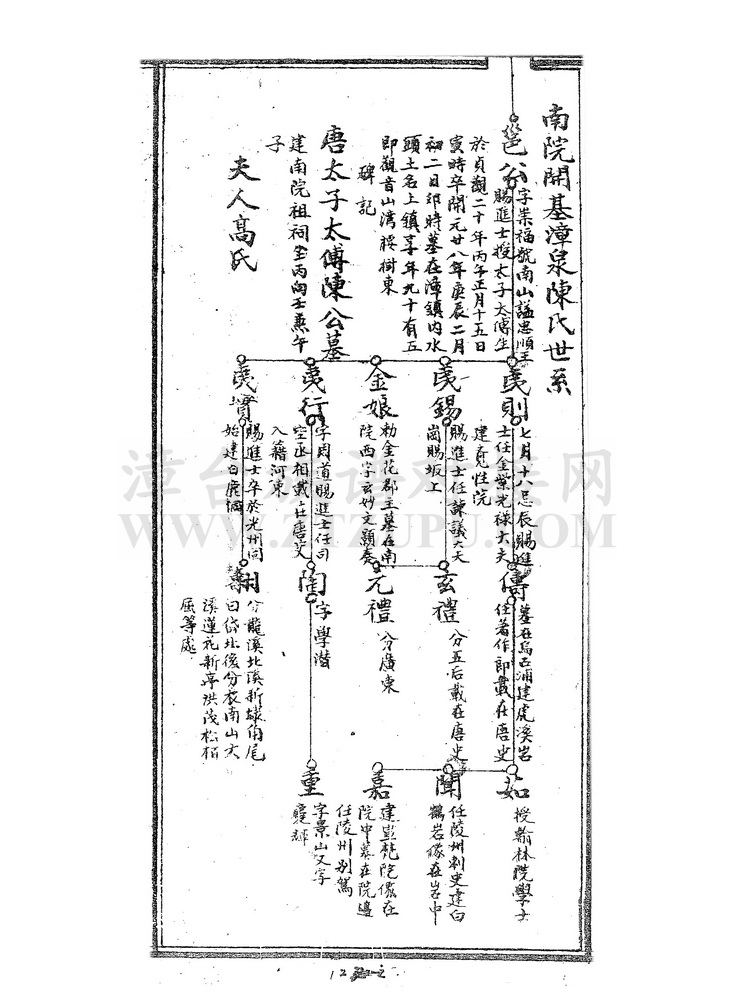 南院開基漳泉陳氏世系
邕公
字崇福號南山謚忠順王
賜進士授太子太傅生
於貞觀二十年丙午正月十五日
寅時卒開元廿八年庚辰二月
初二日卯時墓在漳鎮內水
頭土名上鎮享年九十有五
即觀音山湾樹東
碑記
唐太子太傅陳公墓
建南院祖祠坐丙向壬兼午
子
夫人高氏
夷則
七月十八忌辰賜進
士任金紫光祿大夫
建院
夷錫
賜進士任諫議大夫
崗賜坂上
金娘
勅金花郡主墓在南
院西字玄妙文顯奏
夷行
字周道賜進士任司
空丞相載在唐史
入籍河東
夷實
賜進士卒於光州同
始建白鹿洞
俦
墓在烏石浦建虎溪岩
任著作郎載在唐史
玄禮
分五后載在唐史
元禮
分廣東
閣
字學潛
翱
分龍溪北溪新墟角尾
曰岱北後分衣南山大
溪蓮花新亭洪茂松栢
屈等處
如
授翰林院學士
聞
任陵州刺史建白
鶴岩像在岩中
嘉
建梵院像在
院中墓在院邊
任陵州別駕
重
字景山又字
12
漳台族谱对接网
WWW.ZTZUPU.COM